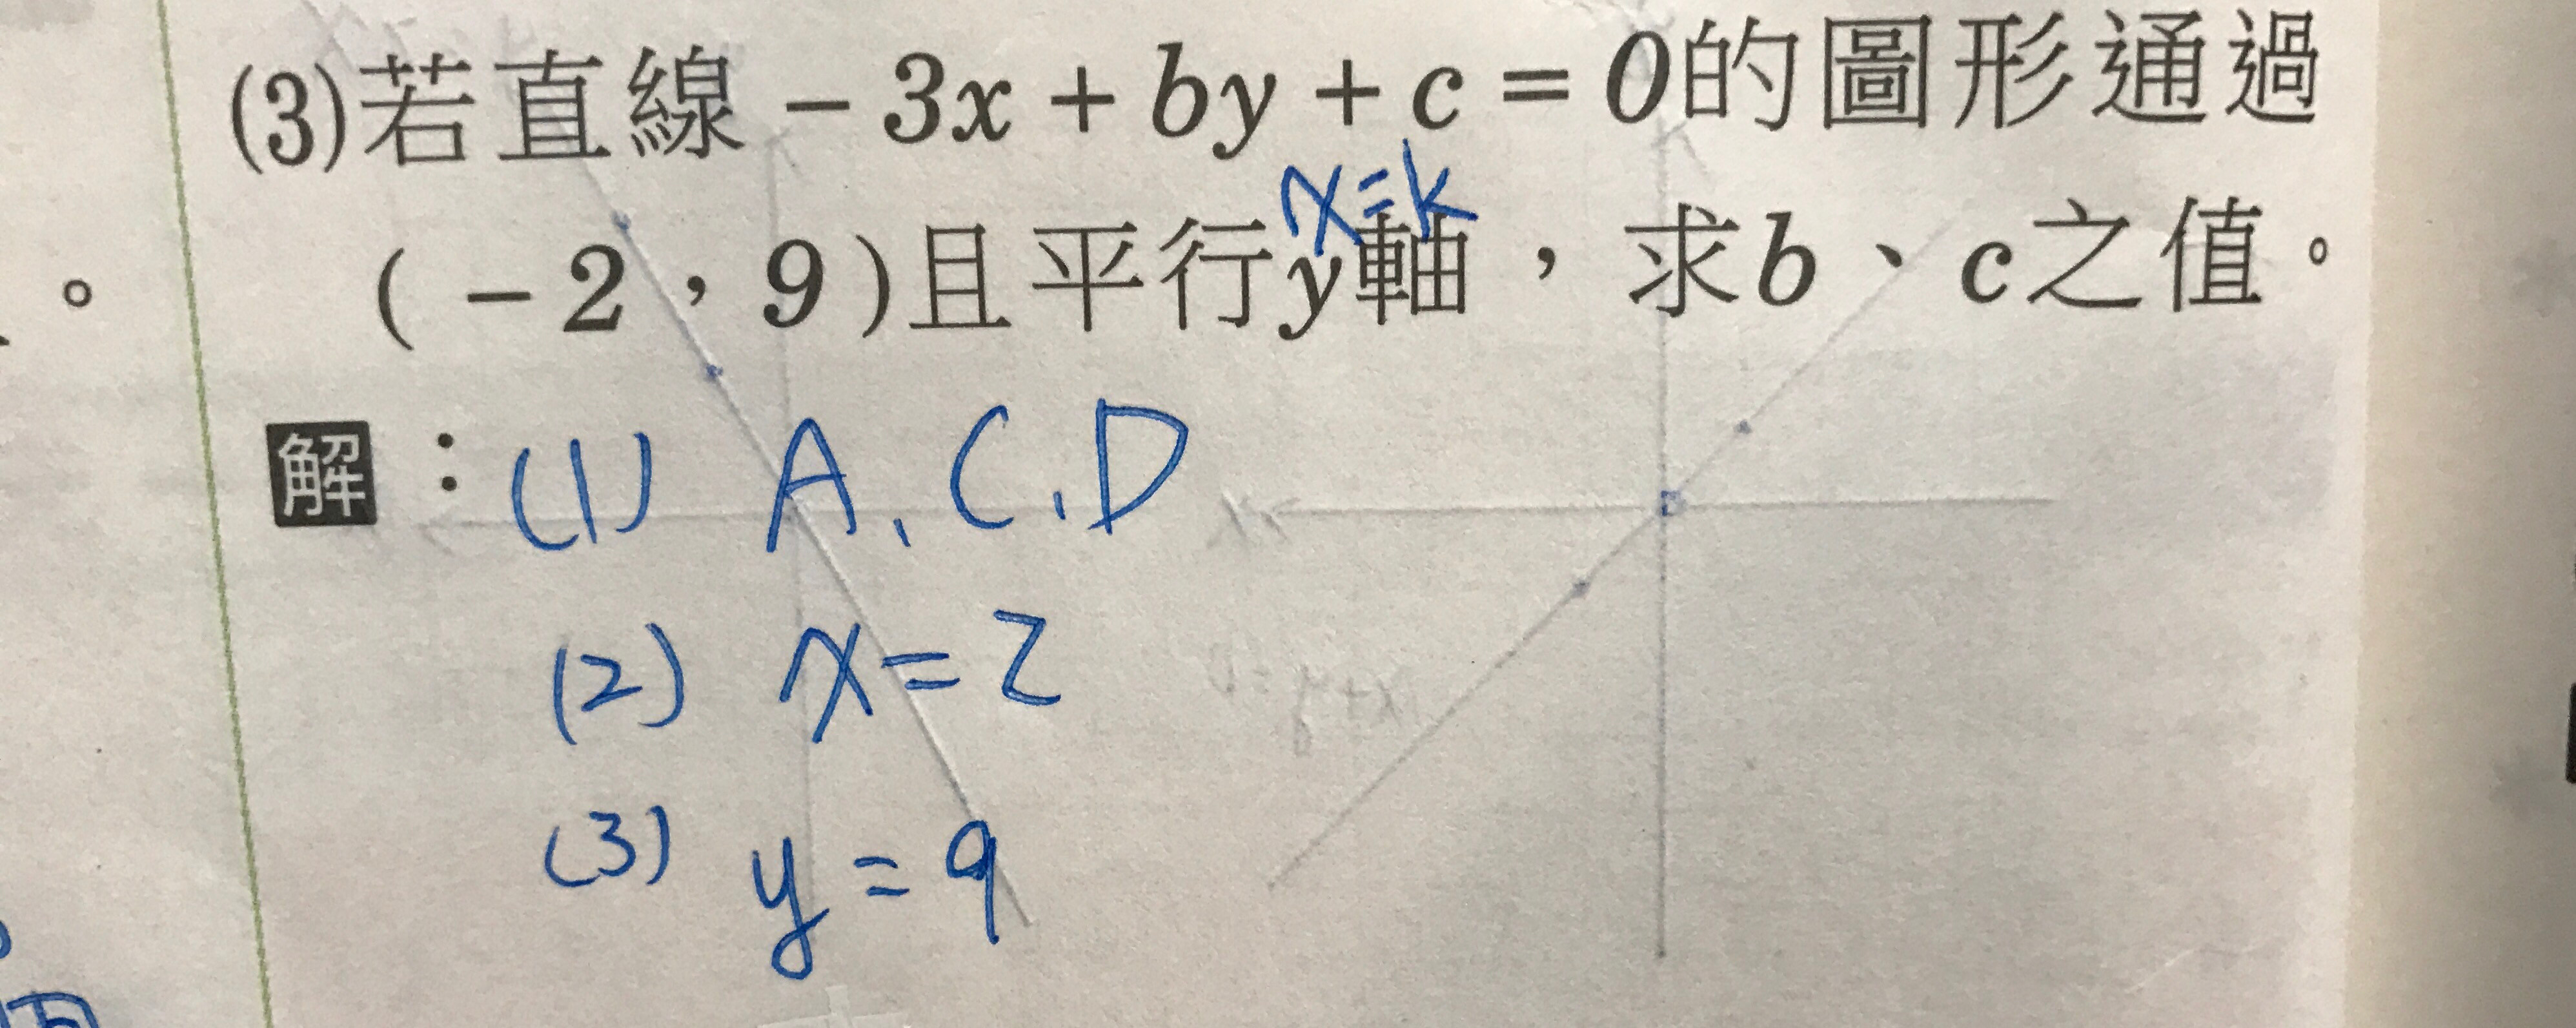 (3)若直線-3x+by+c=0的圖形通過
x=k
(-2,9)且平行y軸,求b、c之值。
解:(1) A、C、D
(2) x=2
(3) y=9